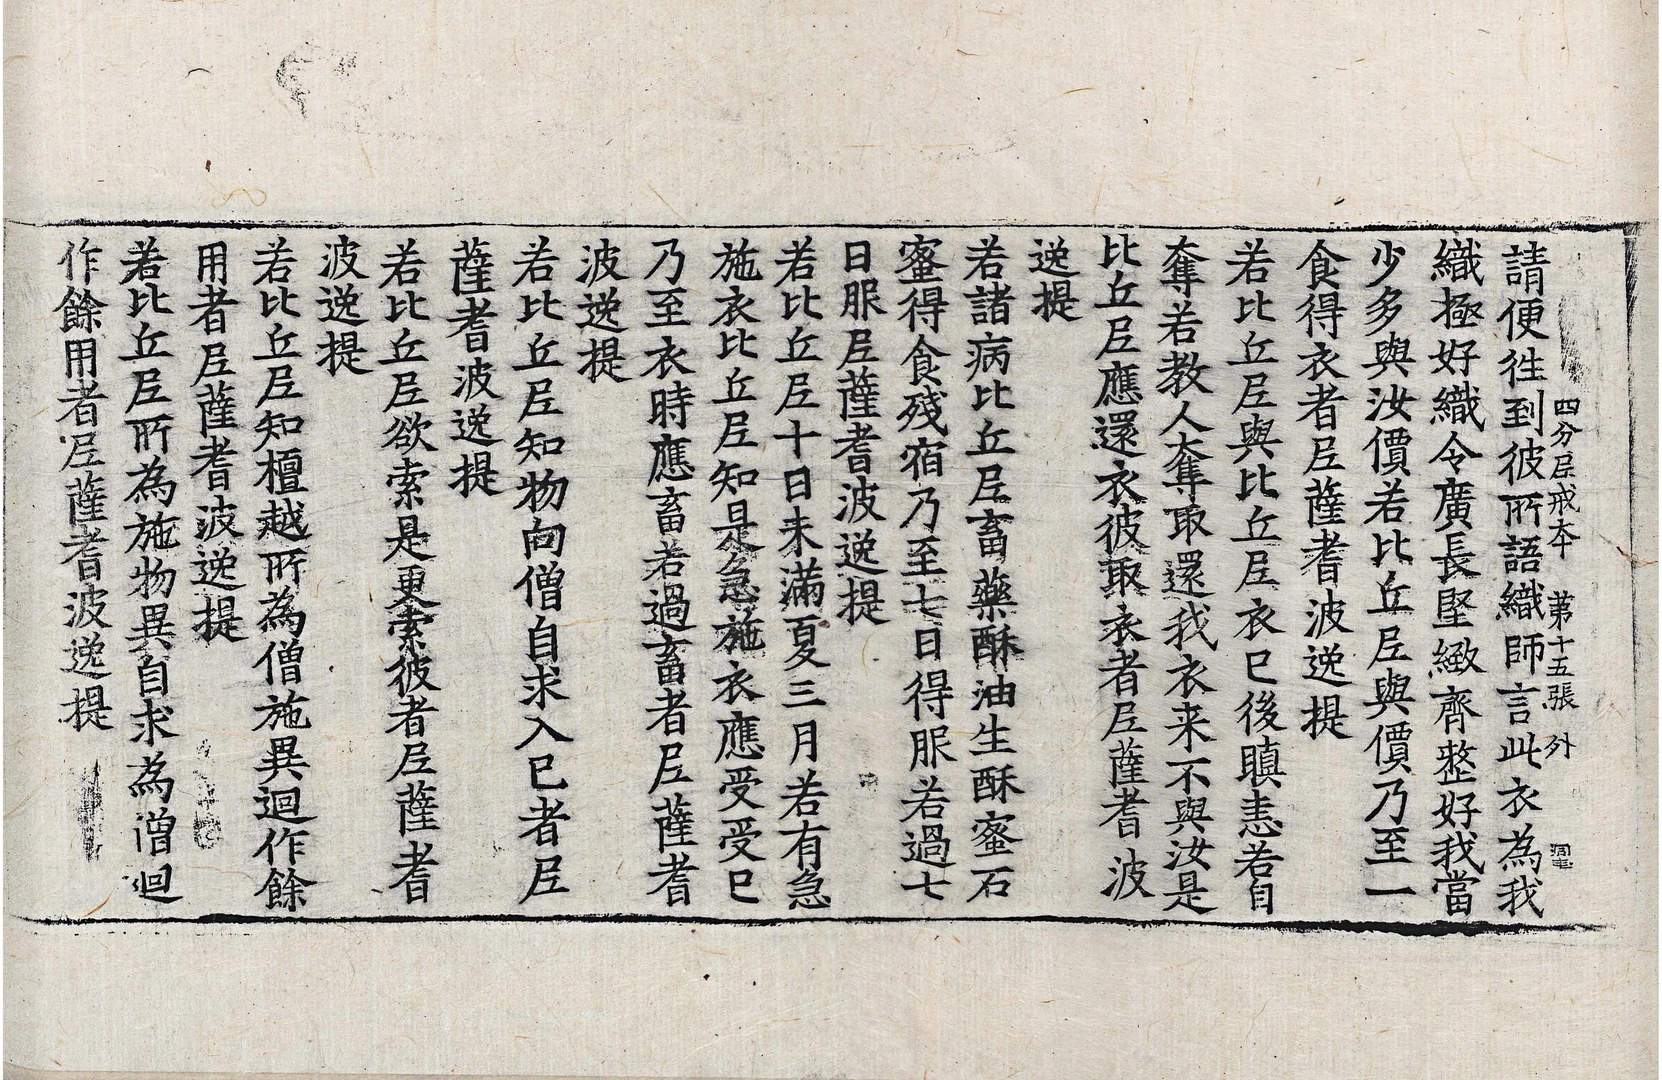 四分尼戒本 第十五張 外
請便往到彼所語織師言此衣為我
織極好織令廣長堅緻齊整好我當
少多與汝價若比丘尼與價乃至一
食得衣者尼薩耆波逸提
若比丘尼與比丘尼衣已後瞋恚若自
奪若教人奪取還我衣来不與汝是
比丘尼應還衣彼取衣者尼薩耆波
逸提
若諸病比丘尼畜藥酥油生酥蜜石
蜜得食殘宿乃至七日得服若過七
日服尼薩耆波逸提
若比丘尼十日未滿夏三月若有急
施衣比丘尼知是急施衣應受受已
乃至衣時應畜若過畜者尼薩耆
波逸提
若比丘尼知物向僧自求入已者尼
薩耆波逸提
若比丘尼欲索是更索彼者尼薩耆
波逸提
若比丘尼知檀越所為僧施異迴作餘
用者尼薩耆波逸提
若比丘尼所為施物異自求為僧迴
作餘用者尼薩耆波逸提